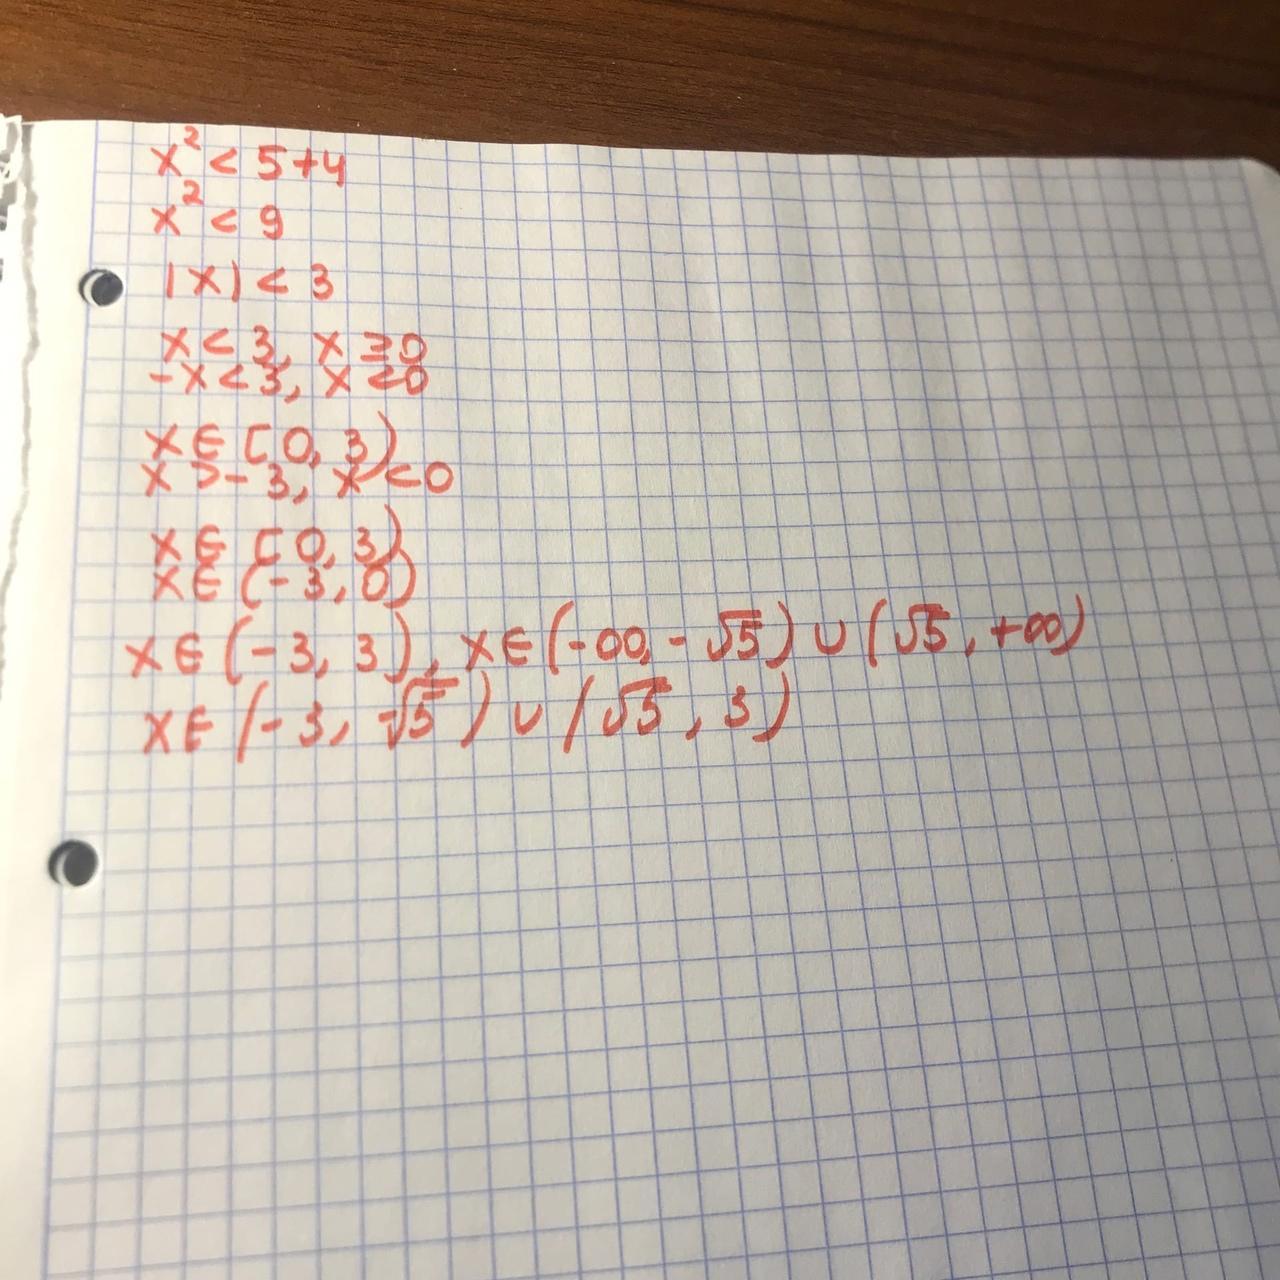 x² < 5+4
x² < 9
|x| < 3
x < 3, x ≥0
-x < 3, x <0
x ∈ [0, 3)
x > -3, x <0
x ∈ [0, 3)
x ∈ (-3, 0)
x ∈ (-3, 3), x ∈ (-∞, -√5) ∪ (√5, +∞)
x ∈ (-3, -√5) ∪ (√5, 3)